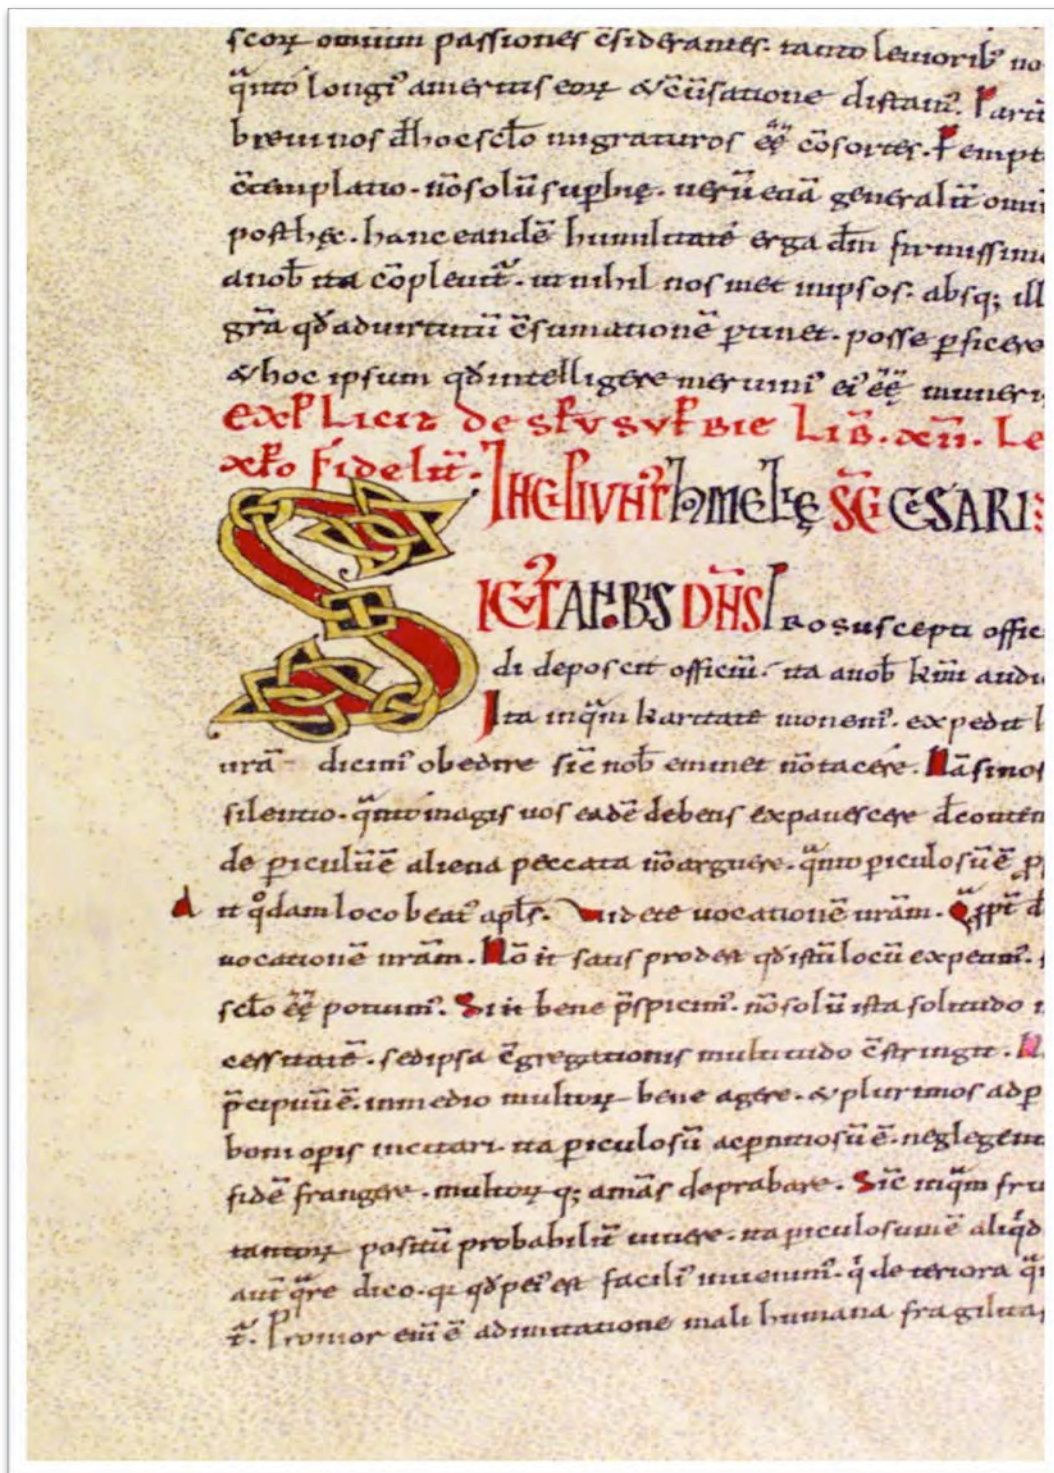 scoꝝ omium passiones c̄siderantes. tanto leuiorib; no
qͣnto longi᾽ amertis eoꝝ & c̄u̅satione distam᾽. Parti
breui nos dhoc scl̄o migraturos ee᷒ cōsortes. Tempt
c̄templatio. nōsolū sup̱bię. uerū etiā generalit̄ omi
posthęc. hanc eandē humilitatē erga dm̄ firmissim
anob̄ ita cōpleat᷑. ut nihil nos met inipsos. absq; ill
gr̄a qd̄ aduirtutū c̄sumationē ꝑtinet. posse ꝑficere
& hoc ipsum qd̄ intelligere meruim᾽ ei᾽ ēē muneri
explicit de sp̄u sup̱bie Lib̄. xii. Le
xp̄o fidelit̄.
INCIPIVNT hmelię SC̄I CESARI
SICVT A NOBIS DN̄S Pro suscepti offic
di deposcit officiū. ita anob̄ km̄i audi
Ita inqͣm karitatē monem᾽. expedit
urā dicim᾽ obedire sic̄ nob̄ eminet nō tacere. Nā si nos
silentio. qͣnto magis uos eadē debetis expauescere dcontem
de ꝑiculū ē aliena peccata nō arguere. qͣnto ꝑiculosū ē p̱
A it qͦdam loco beat᾽ apl̄s. Videte uocationē urām. Qͣpp̄t d
uocationē urām. Nō .n. satis prodest qd̄ istū locū expetim᾽.
scl̄o ēē potuim᾽. Si .n. bene p̄spicim᾽. nō solū ista solitudo
cessitatē. sed ipsa c̄gregationis multitudo c̄stringit. N
p̄cipuū ē. inmedio multoꝝ bene agere. & plurimos ad ꝑ
boni oꝑis incitari. ita ꝑiculosū ac ꝑnitiosū ē. neglegent
fidē frangere. multoꝝ q; amās deprabare. Sic̄ inqͣm fru
tantoꝝ positū probabilit̄ uiuere. ita ꝑiculosum ē aliqͥd
aut̄ qͣre dico. qi qd̄ pei᾽ est facili᾽ inuenim᾽. qͥ deteriora qͣ
t᷑. Promor eni̅ ē adimitatione mali humana fragilitas